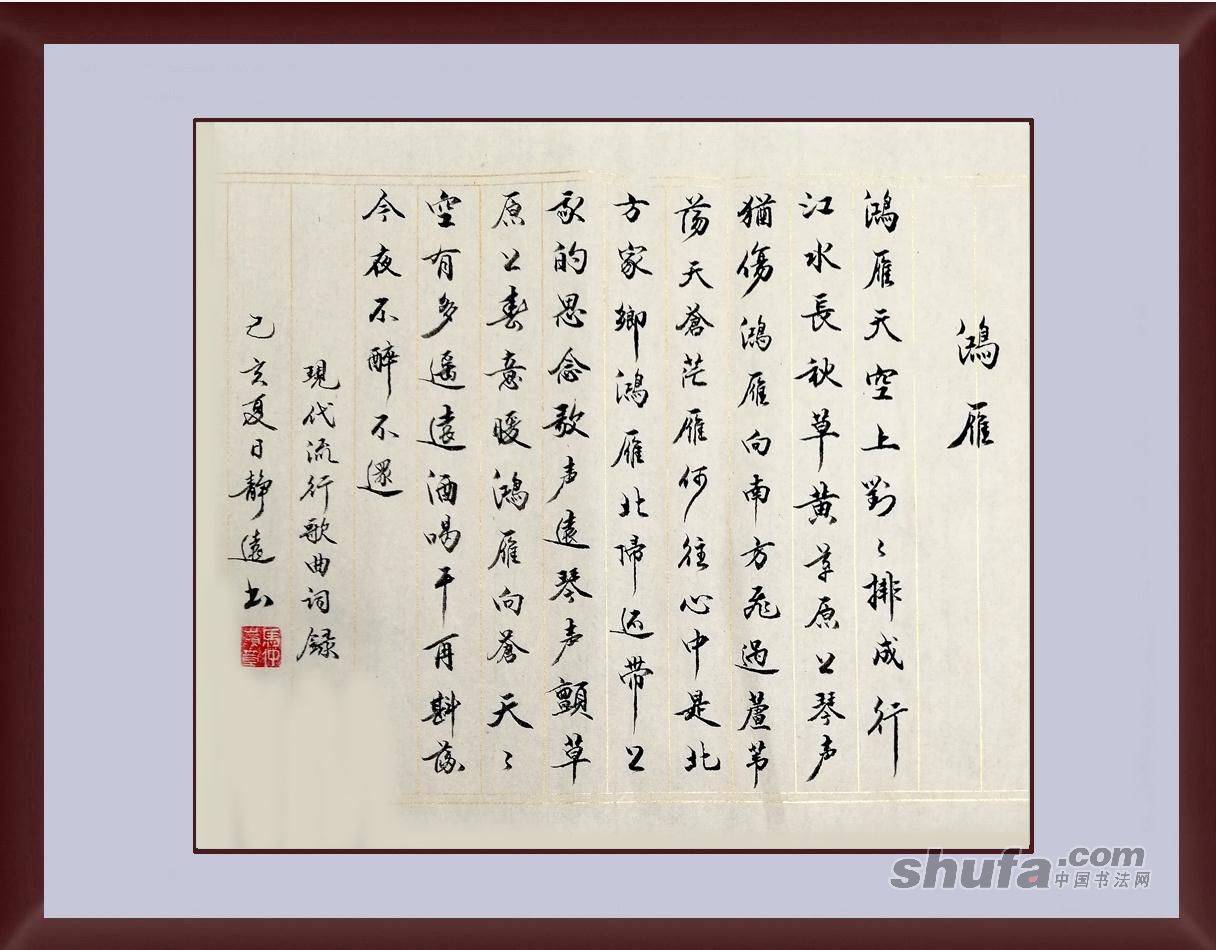 鴻雁
鴻雁天空上對〻排成行
江水長秋草黄草原上琴声
猶傷鴻雁向南方飛過蘆苇
荡天蒼茫雁何往心中是北
方家鄉鴻雁北歸还帶上
我的思念歌声遠琴声顫草
原上春意暖鴻雁向蒼天〻
空有多遥遠酒喝干再斟滿
今夜不醉不還
現代流行歌曲词録
己亥夏日静遠书
shufa.com
中国书法网